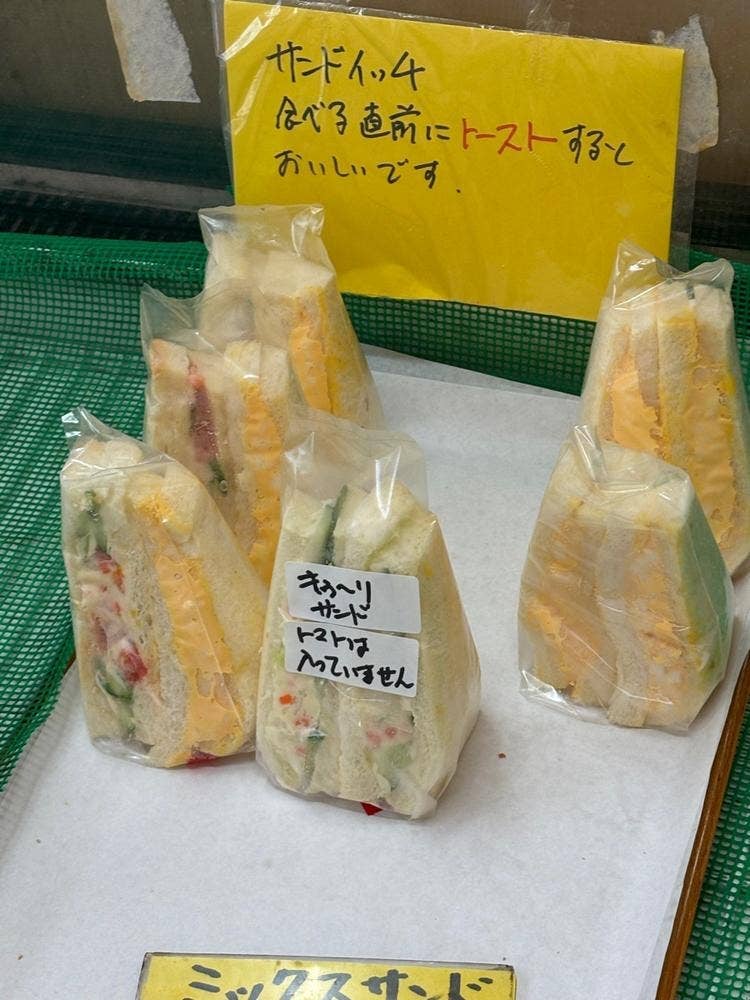 サンドイッチ
食べる直前にトーストすると
おいしいです.
きゅ〜り
サンド
トマトは
入っていません
ミックスサンド